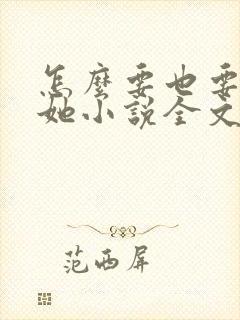 怎麼要也要
她小說全文
范西屏